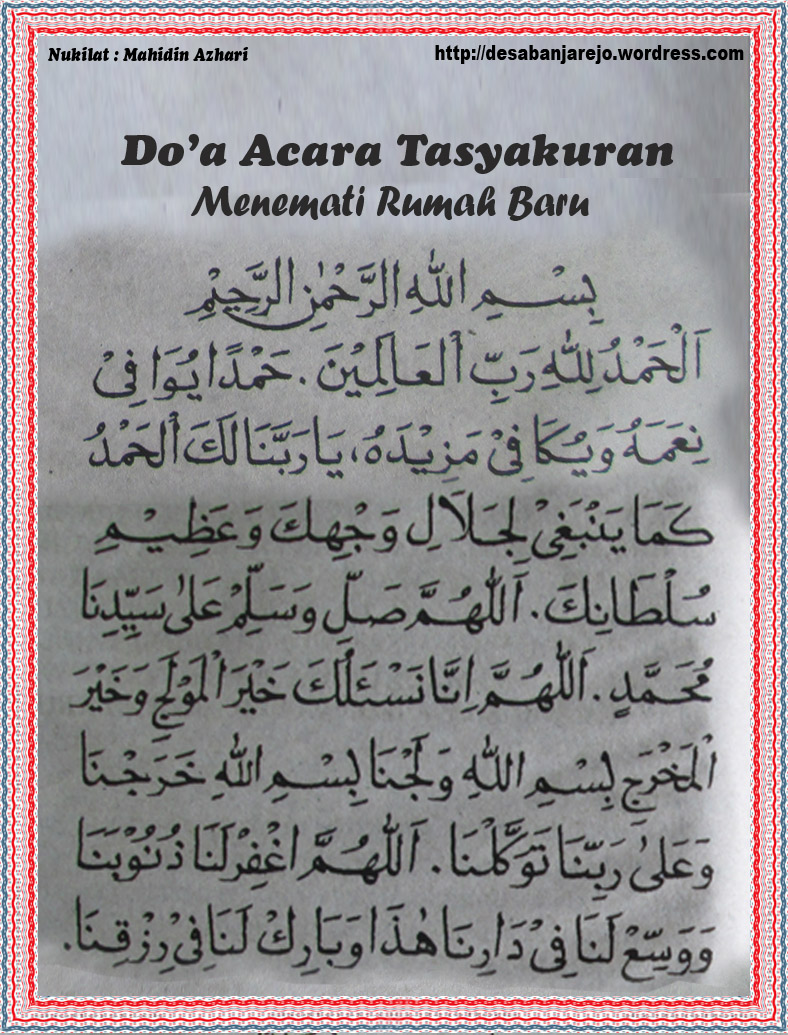 Nukilat : Mahidin Azhari
http://desabanjarejo.wordress.com
Do'a Acara Tasyakuran
Menemati Rumah Baru
بِسْمِ اللهِ الرَّحْمٰنِ الرَّحِيْمِ
اَلْحَمْدُ لِلّٰهِ رَبِّ الْعَالَمِيْنَ. حَمْدًا يُوَافِىْ
نِعَمَهُ وَيُكَافِىْ مَزِيْدَهُ، يَا رَبَّنَا لَكَ الْحَمْدُ
كَمَا يَنْبَغِىْ لِجَلَالِ وَجْهِكَ وَعَظِيْمِ
سُلْطَانِكَ. اَللّٰهُمَّ صَلِّ وَسَلِّمْ عَلٰى سَيِّدِنَا
مُحَمَّدٍ. اَللّٰهُمَّ اِنَّا نَسْئَلُكَ خَيْرَ الْمَوْلَجِ وَخَيْرَ
الْمَخْرَجِ بِسْمِ اللهِ وَلَجْنَا بِسْمِ اللهِ خَرَجْنَا
وَعَلٰى رَبِّنَا تَوَكَّلْنَا. اَللّٰهُمَّ اغْفِرْلَنَا ذُنُوْبَنَا
وَوَسِّعْ لَنَا فِىْ دَارِنَا هٰذَا وَبَارِكْ لَنَا فِىْ رِزْقِنَا.